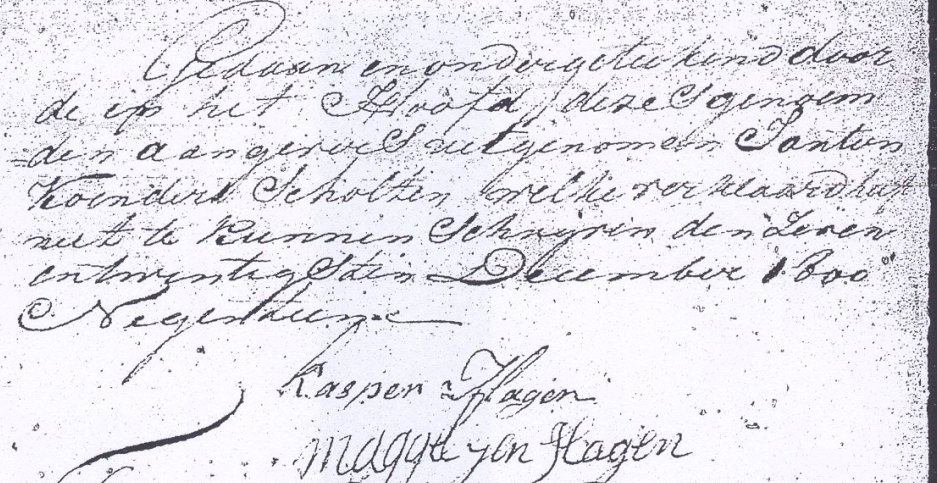 Gedaan en ondergeteekend door
de op het Hoofd dezes genoem
den aangever uitgenomen
Koenders Scholten welke verklaard heeft
niet te kunnen Schrijven den Zeven
entwintig Sten December 1800
Negentien
Kasper Hagen
Hagen